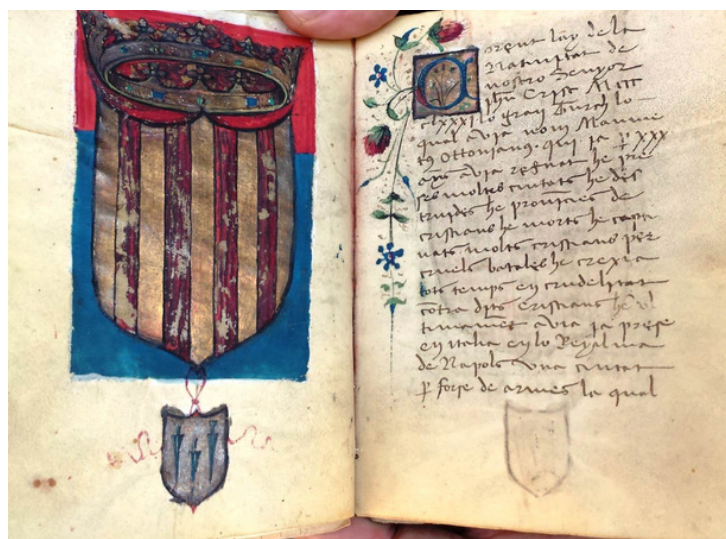 Corent lay de la
Natiuitat de
nostro Senyor
ihu Crist MCCC
clxxxi lo gran Turch lo
qual auia nom Maume
tus Ottomanus qui ja per xxx
ays auia regnat he pre
ses moltes ciutats he des
truides he prouicies de
cristians he morts he capti
uats molts cristians per
cruels batales he crexia
tots temps en crudelitat
cōtra dits cristians he vl
timamet auia ja presse
en italia en lo Reyalma
de Napols vna ciutat
per forse de armes la qual